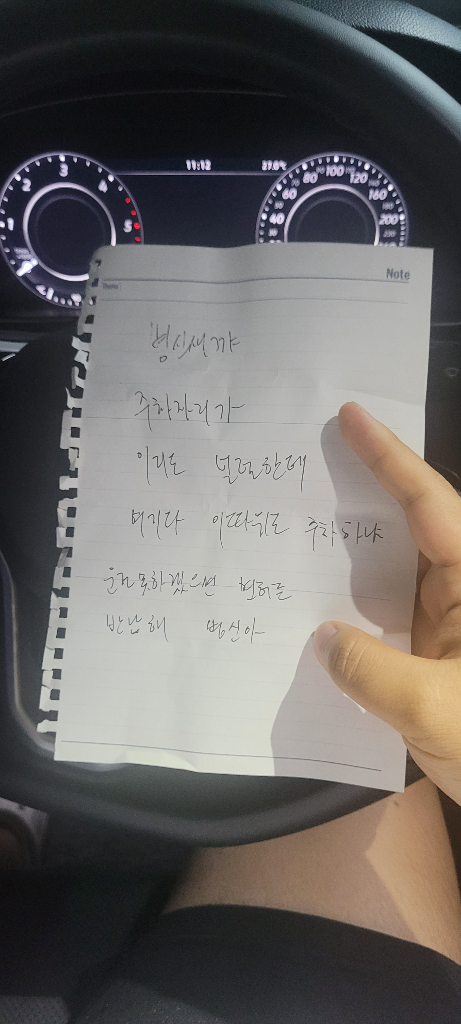 11:12 27.0°C
1 2 3 4 5
40 60 80 100 120 160 200
Note
Theme :
병신새꺄
주차자리가
이리도 널럴한데
여기다 이따위로 주차하냐
운전못하겠으면 면허를
반납해 병신아